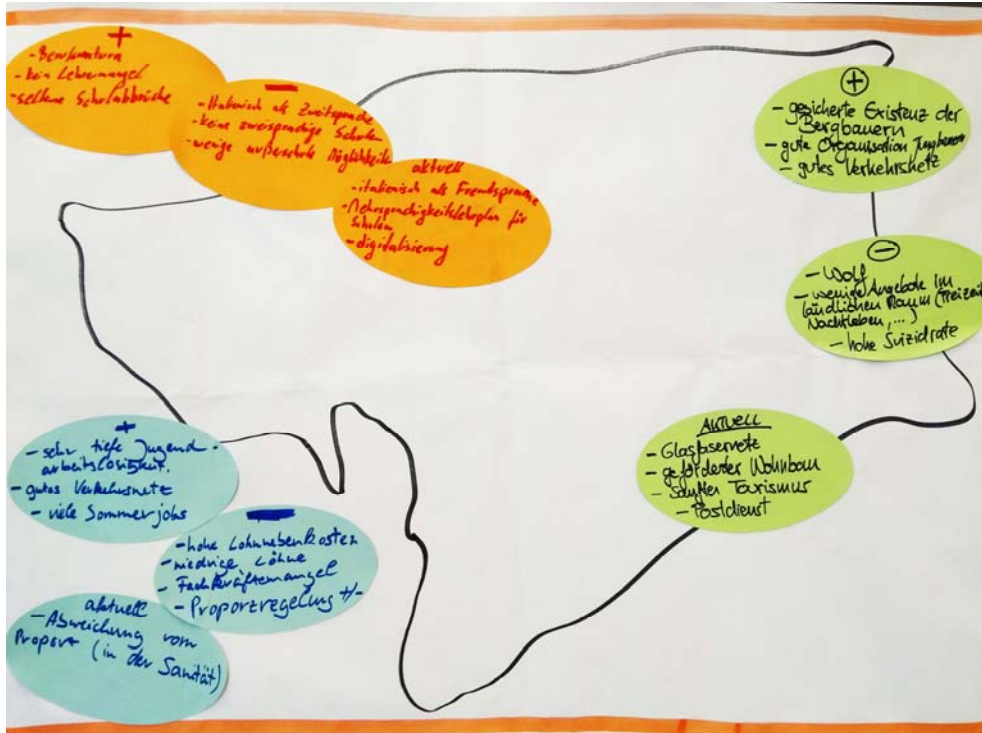 +
- Berufsmatura
- kein Lehrermangel
- seltene Schulabbrüche
—
- Italienisch als Zweitsprache
- keine zweisprachige Schulen
- wenige außerschul. Möglichkeiten
aktuell
- italienisch als Fremdsprache
- Mehrsprachigkeitslehrplan für
Schulen
- digitalisierung
+
- gesicherte Existenz der
Bergbauern
- gute Organisation Jungbauern
- gutes Verkehrsnetz
-
- Wolf
- wenige Angebote im
ländlichen Raum (Freizeit
Nachtleben, ...)
- hohe Suizidrate
AKTUELL
- Glasfasernetz
- geförderter Wohnbau
- Sanfter Tourismus
- Postdienst
+
- sehr tiefe Jugend-
arbeitslosigkeit.
- gutes Verkehrsnetz
- viele Sommerjobs
—
- hohe Lohnnebenkosten
- niedrige Löhne
- Fachkräftemangel
- Proporzregelung +/-
aktuell
- Abweichung vom
Proporz (in der Sanität)